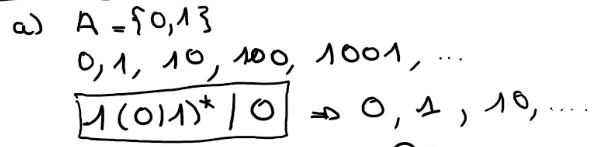 a) A = {0,1}
0, 1, 10, 100, 1001, ...
1(0|1)* | 0 ⇒ 0, 1, 10, ....